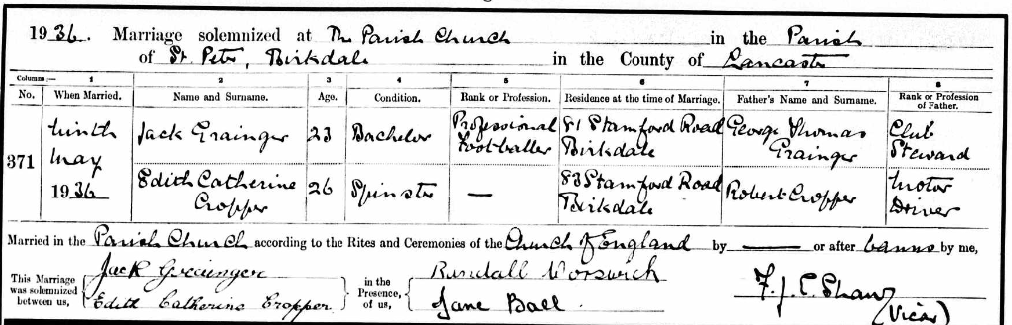 1936. Marriage solemnized at The Parish Church in the Parish
of St. Peter, Birkdale in the County of Lancaster
Columns:— 1 2 3 4 5 6 7 8
No. When Married. Name and Surname. Age. Condition. Rank or Profession. Residence at the time of Marriage. Father's Name and Surname. Rank or Profession of Father.
371 Ninth May 1936 Jack Grainger 23 Bachelor Professional Footballer 81 Stamford Road Birkdale George Thomas Grainger Club Steward
Edith Catherine Cropper 26 Spinster — 83 Stamford Road Birkdale Robert Cropper Motor Driver
Married in the Parish Church according to the Rites and Ceremonies of the Church of England by — or after banns by me,
This Marriage was solemnized between us, Jack Grainger Edith Catherine Cropper in the Presence of us, Rundall Worswick Jane Ball F. J. C. Shaw (Vicar)